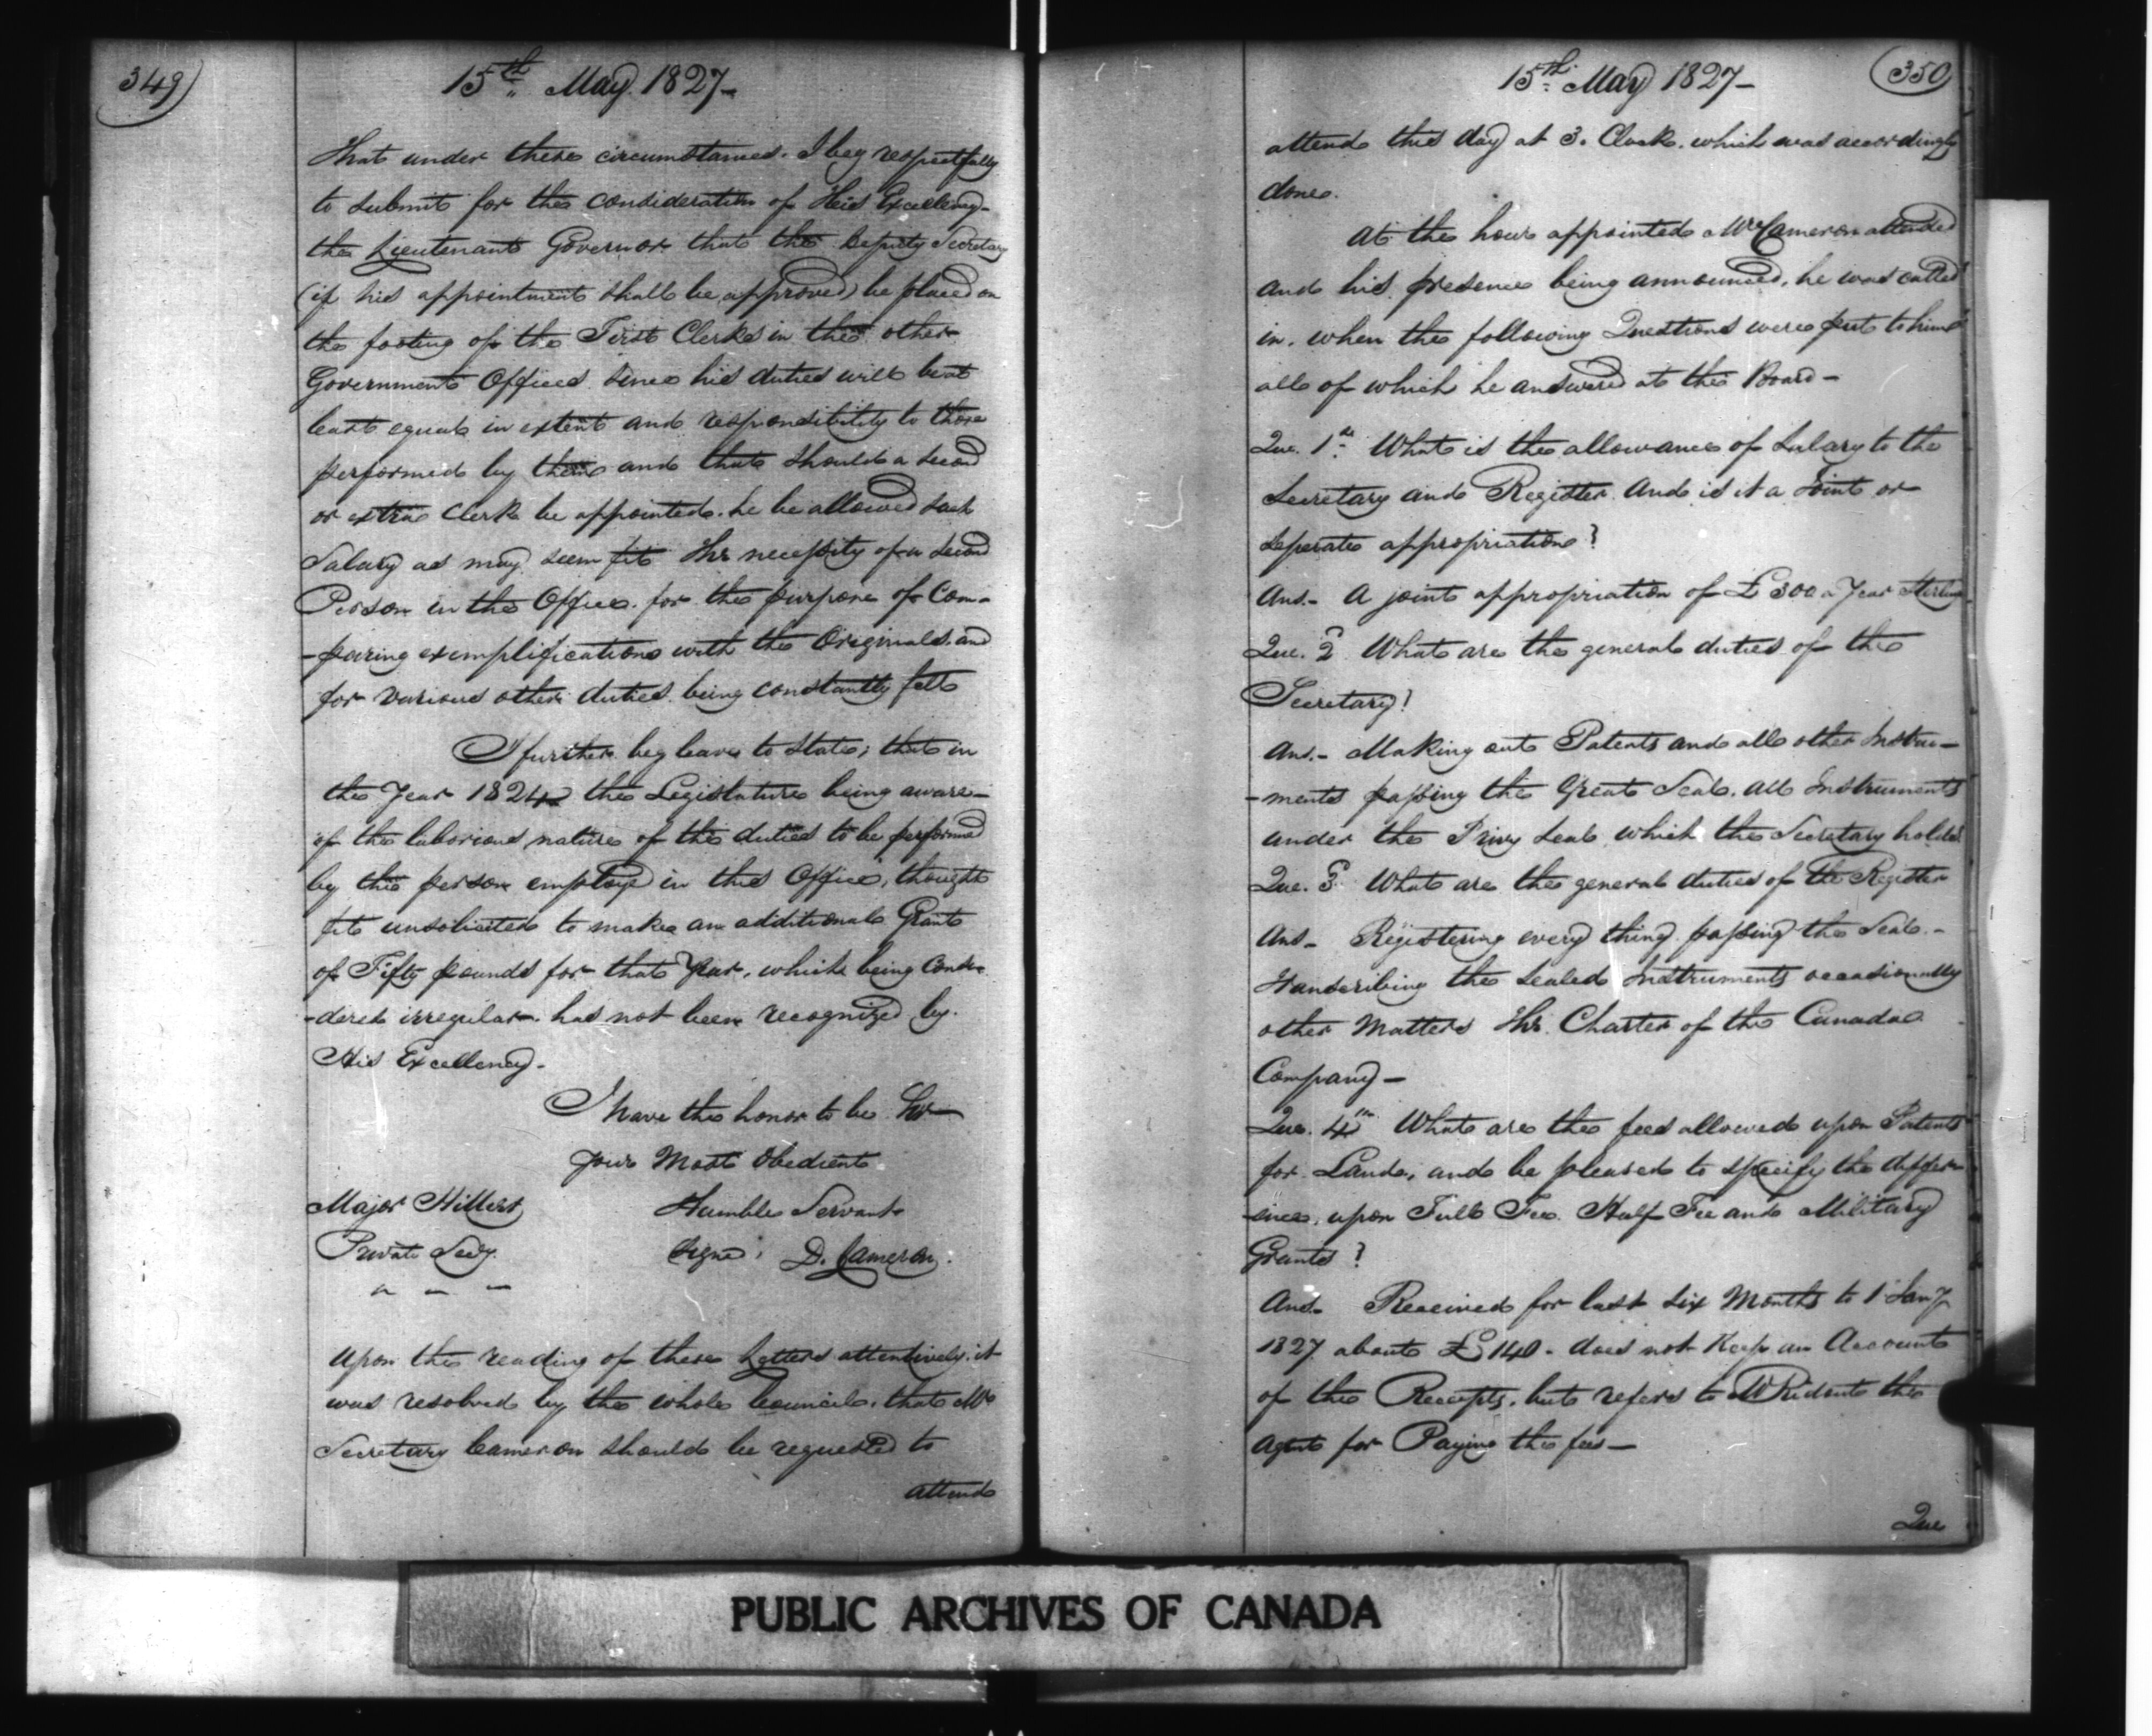 349
15th May 1827-
That under these circumstances. I beg respectfully
to submit for the consideration of His Excellency-
the Lieutenant Governor that the Deputy Secretary
(if his appointment shall be approved) be placed on
the footing of the First Clerks in the other
Government Offices. Since his duties will be at
least equal in extent and responsibility to those
performed by them and that should a second
or extra Clerk be appointed. he be allowed such
Salary as may seem fit The necessity of a second
Person in the Office. for the purpose of Com-
-paring exemplifications with the Originals. and
for various other duties. being constantly felt
I further beg leave to state; that in
the Year 1824 the Legislature being aware-
of the laborious nature of the duties to be performed
by the person employed in this Office, thought
fit unsolicited to make an additional Grant
of Fifty pounds for that Year, which being Consi-
-dered irregular. has not been recognized by.
His Excellency-
I have the honor to be Sir
Your Most Obedient
Major Hillier Humble Servant
Private Secy. Signed D. Cameron.
Upon the reading of these Letters attentively. it
was resolved by the whole Council. that Mr
Secretary Cameron should be requested to
attend
15th May 1827-
350
attend this day at 3. Clock. which was accordingly
done.
At the hour appointed Mr Cameron attended
and his presence being announced, he was called
in. when the following Questions were put to him
all of which he answered at the Board-
Que. 1st What is the allowance of Salary to the
Secretary and Register. And is it a Joint or
Seperate appropriation?
Ans.- A joint appropriation of £300 a Year Sterling
Que. 2d What are the general duties of the
Secretary?
Ans.- Making out Patents and all other Instru-
-ments passing the Great Seal. All Instruments
under the Privy Seal which the Secretary holds
Que. 3d What are the general duties of the Register
Ans- Registering every thing passing the Seal.-
Transcribing the Sealed Instruments occasionally
other Matters The Charter of the Canada
Company-
Que. 4th What are the fees allowed upon Patents
for Lands, and be pleased to specify the differ-
-ence. upon Full Fee. Half Fee and Military
Grants?
Ans- Received for last Six Months to 1 Jany
1827 about £140- does not Keep an Account
of the Receipts. but refers to Mr Ridout the
Agent for Paying the fees-
Que
PUBLIC ARCHIVES OF CANADA